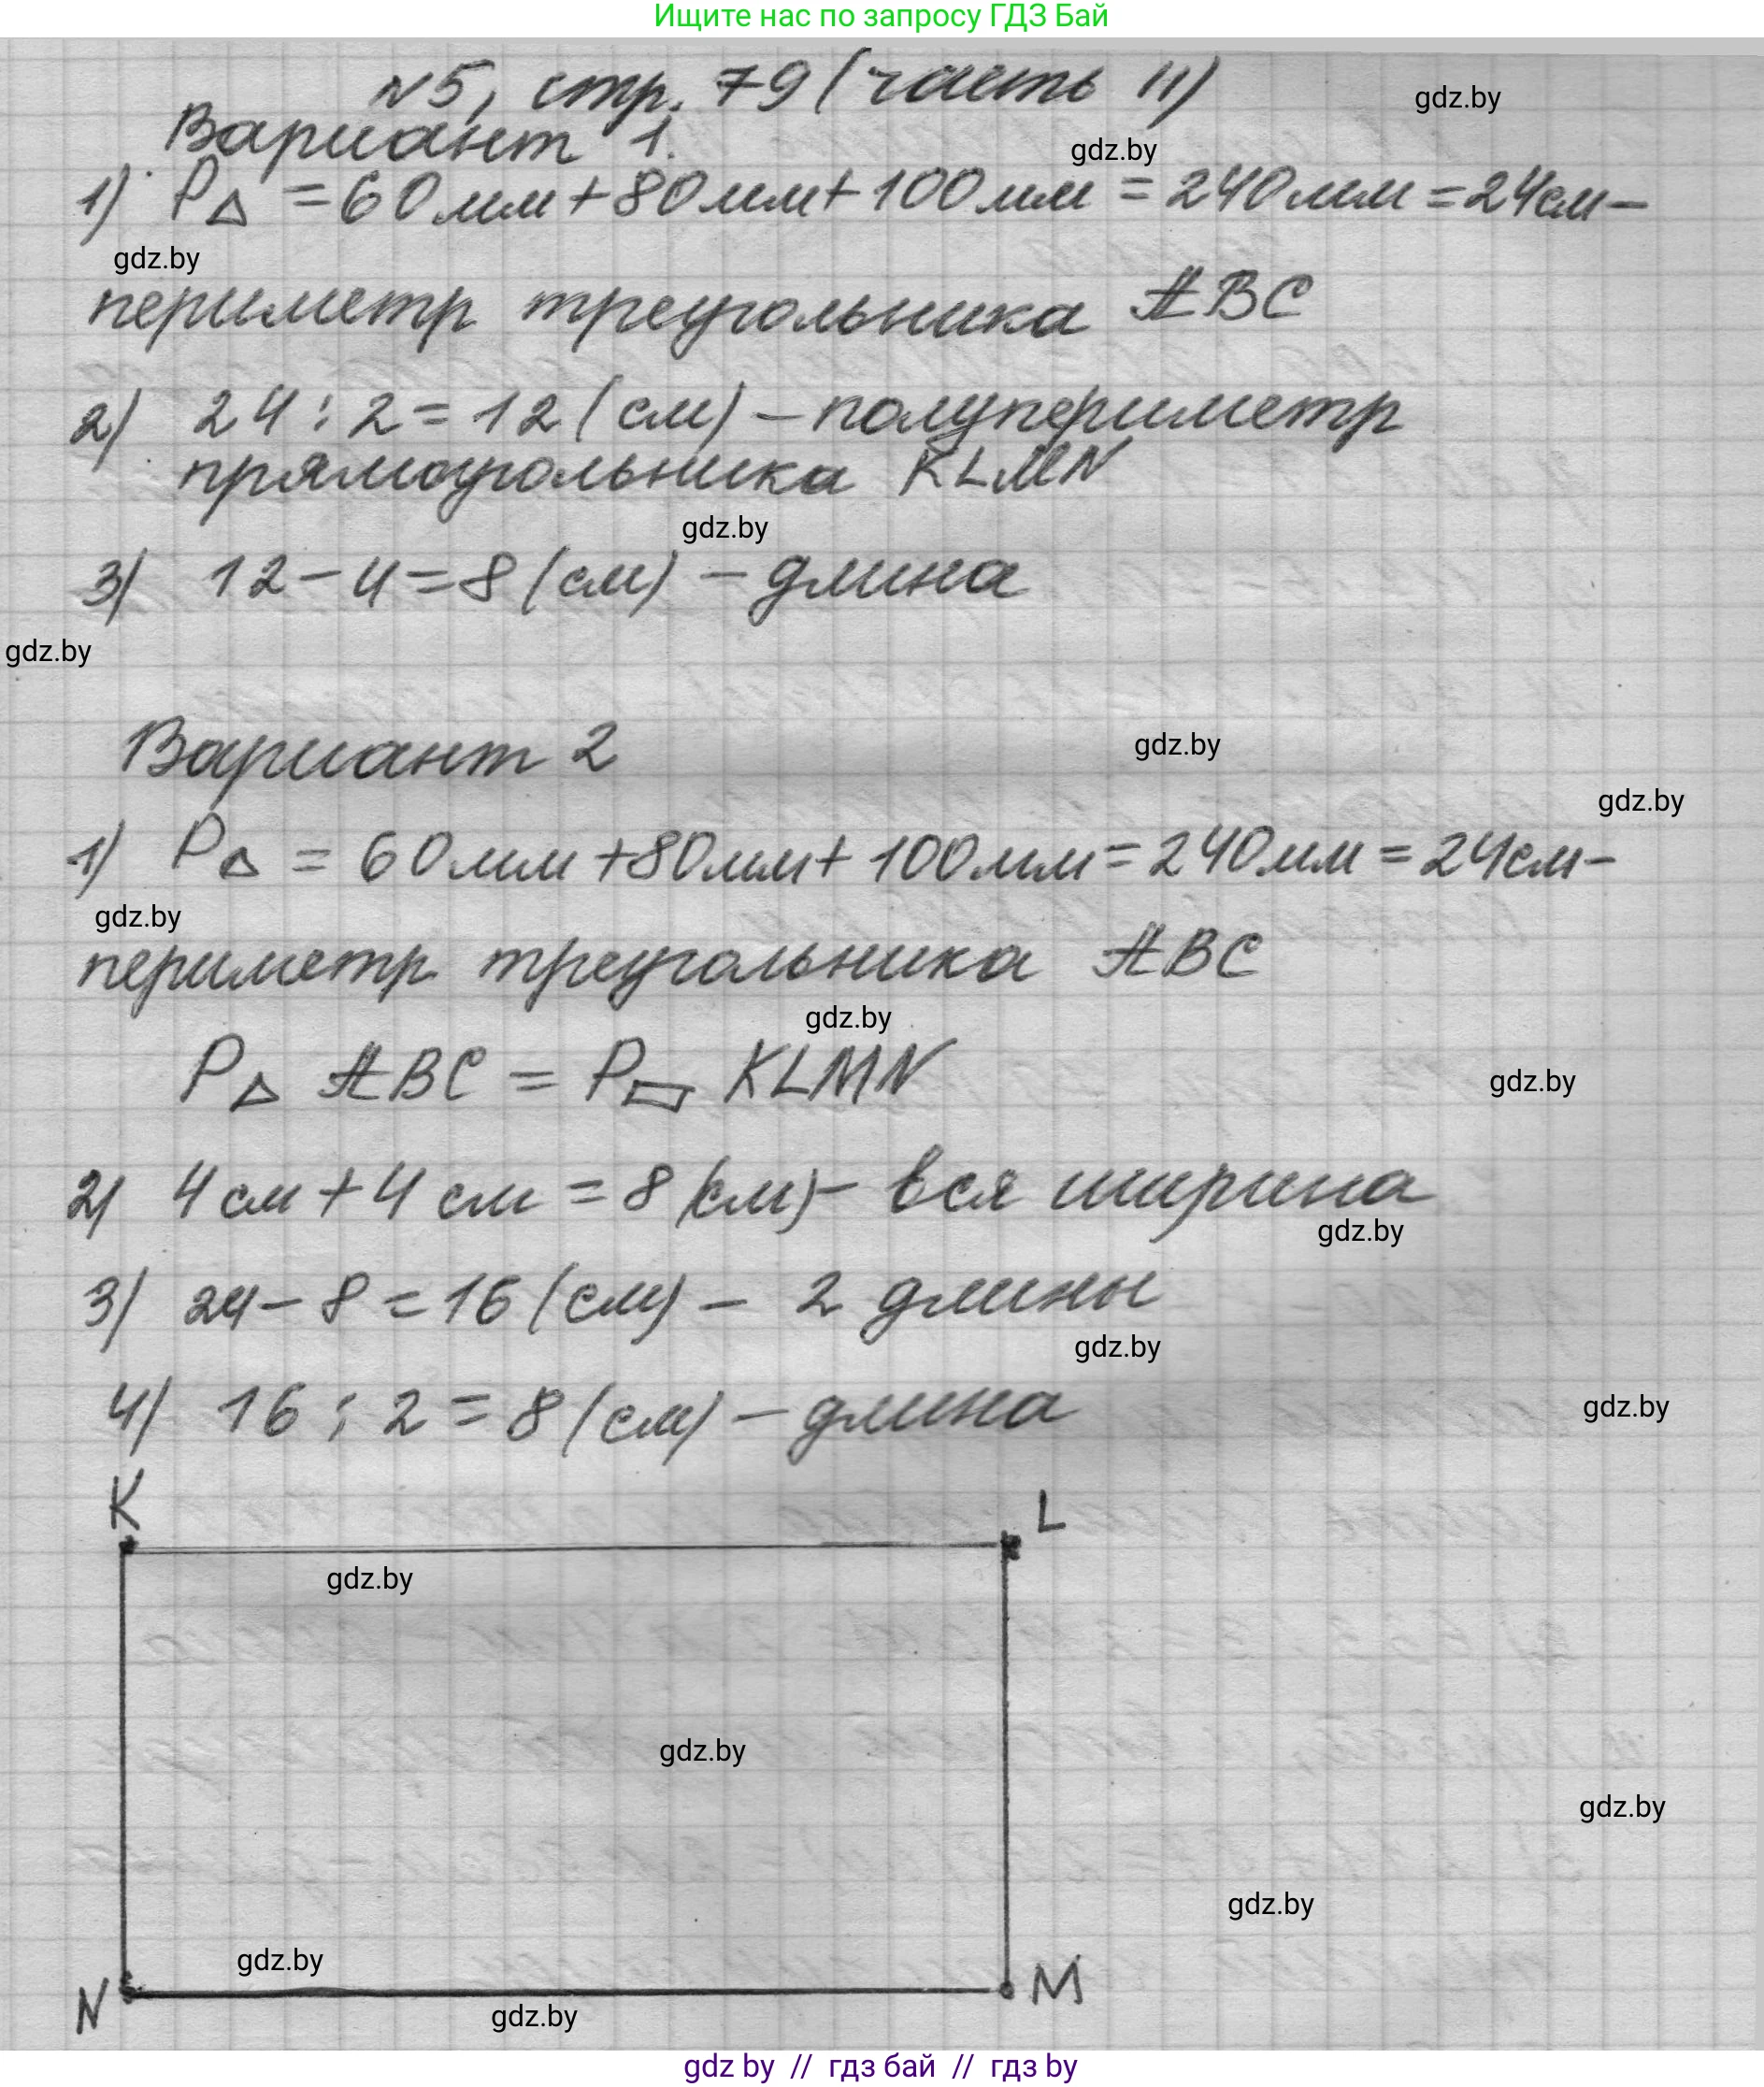 Ищите нас по запросу ГДЗ Бай
№5, стр. 79 (часть II)
gdz.by
Вариант 1.
gdz.by
1) P△ = 60 мм + 80 мм + 100 мм = 240 мм = 24 см –
gdz.by
периметр треугольника ABC
2) 24 : 2 = 12 (см) – полупериметр
прямоугольника KLMN
gdz.by
3) 12 – 4 = 8 (см) – длина
gdz.by
Вариант 2
gdz.by
gdz.by
1) P△ = 60 мм + 80 мм + 100 мм = 240 мм = 24 см –
gdz.by
периметр треугольника ABC
gdz.by
P△ ABC = P▭ KLMN
gdz.by
2) 4 см + 4 см = 8 (см) – вся ширина
gdz.by
3) 24 – 8 = 16 (см) – 2 длины
gdz.by
4) 16 : 2 = 8 (см) – длина
gdz.by
K L
gdz.by
gdz.by
gdz.by
gdz.by
gdz.by
N M
gdz.by
gdz by // гдз бай // гдз by